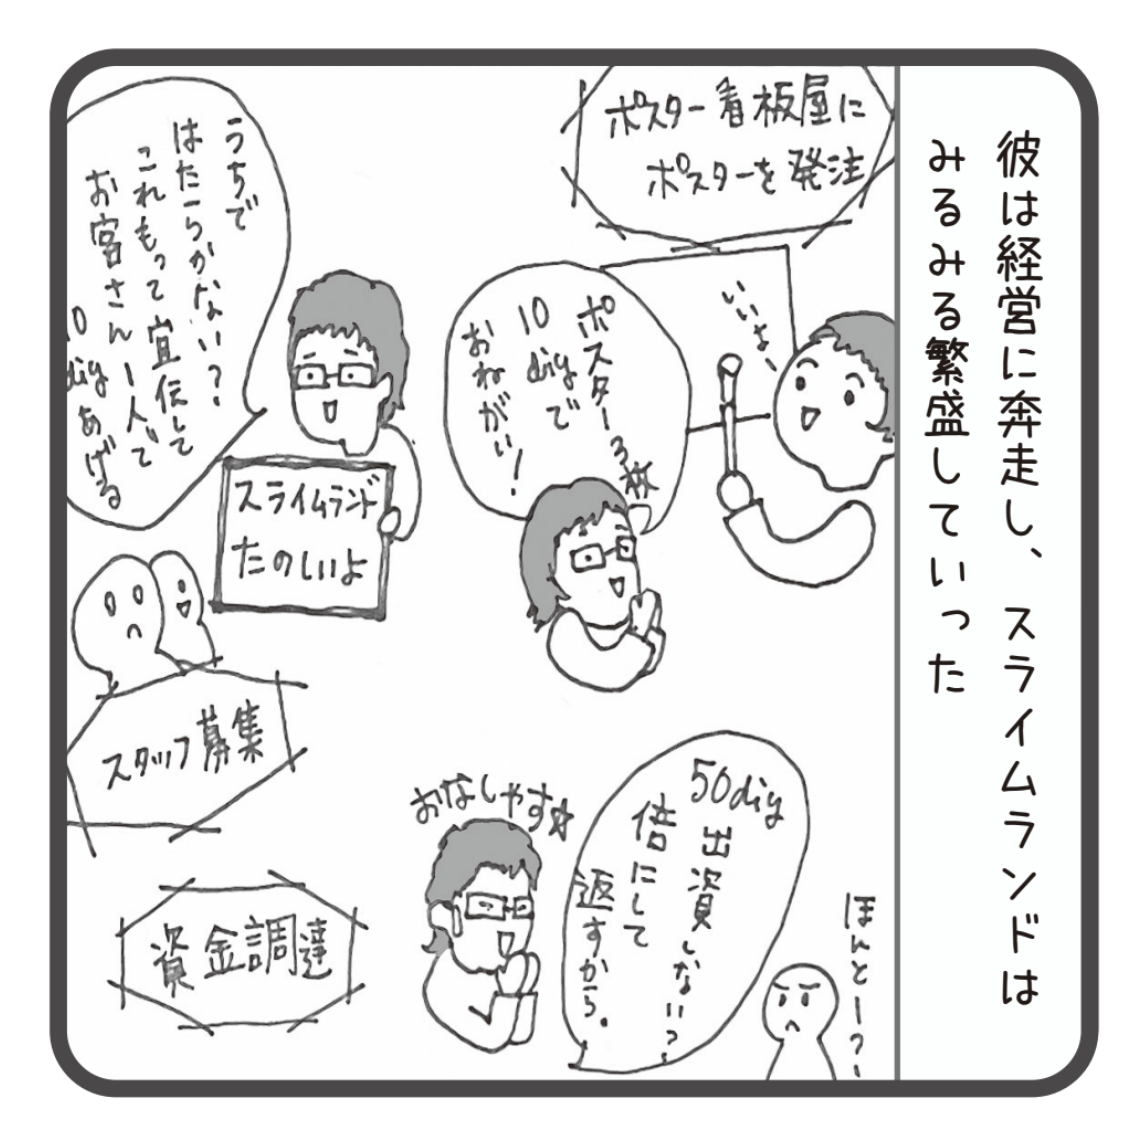 彼は経営に奔走し、スライムランドは
みるみる繁盛していった
ポスター看板屋に
ポスターを発注
いいよ
ポスター3枚
10
diyで
おねがい!
うちで
はたらかない?
これもって宣伝して
お客さん1人で
10
diyあげる
スライムランド
たのしいよ
スタッフ募集
おなしゃす☆
50diy
出資しない?
倍にして
返すから。
ほんとー?
資金調達